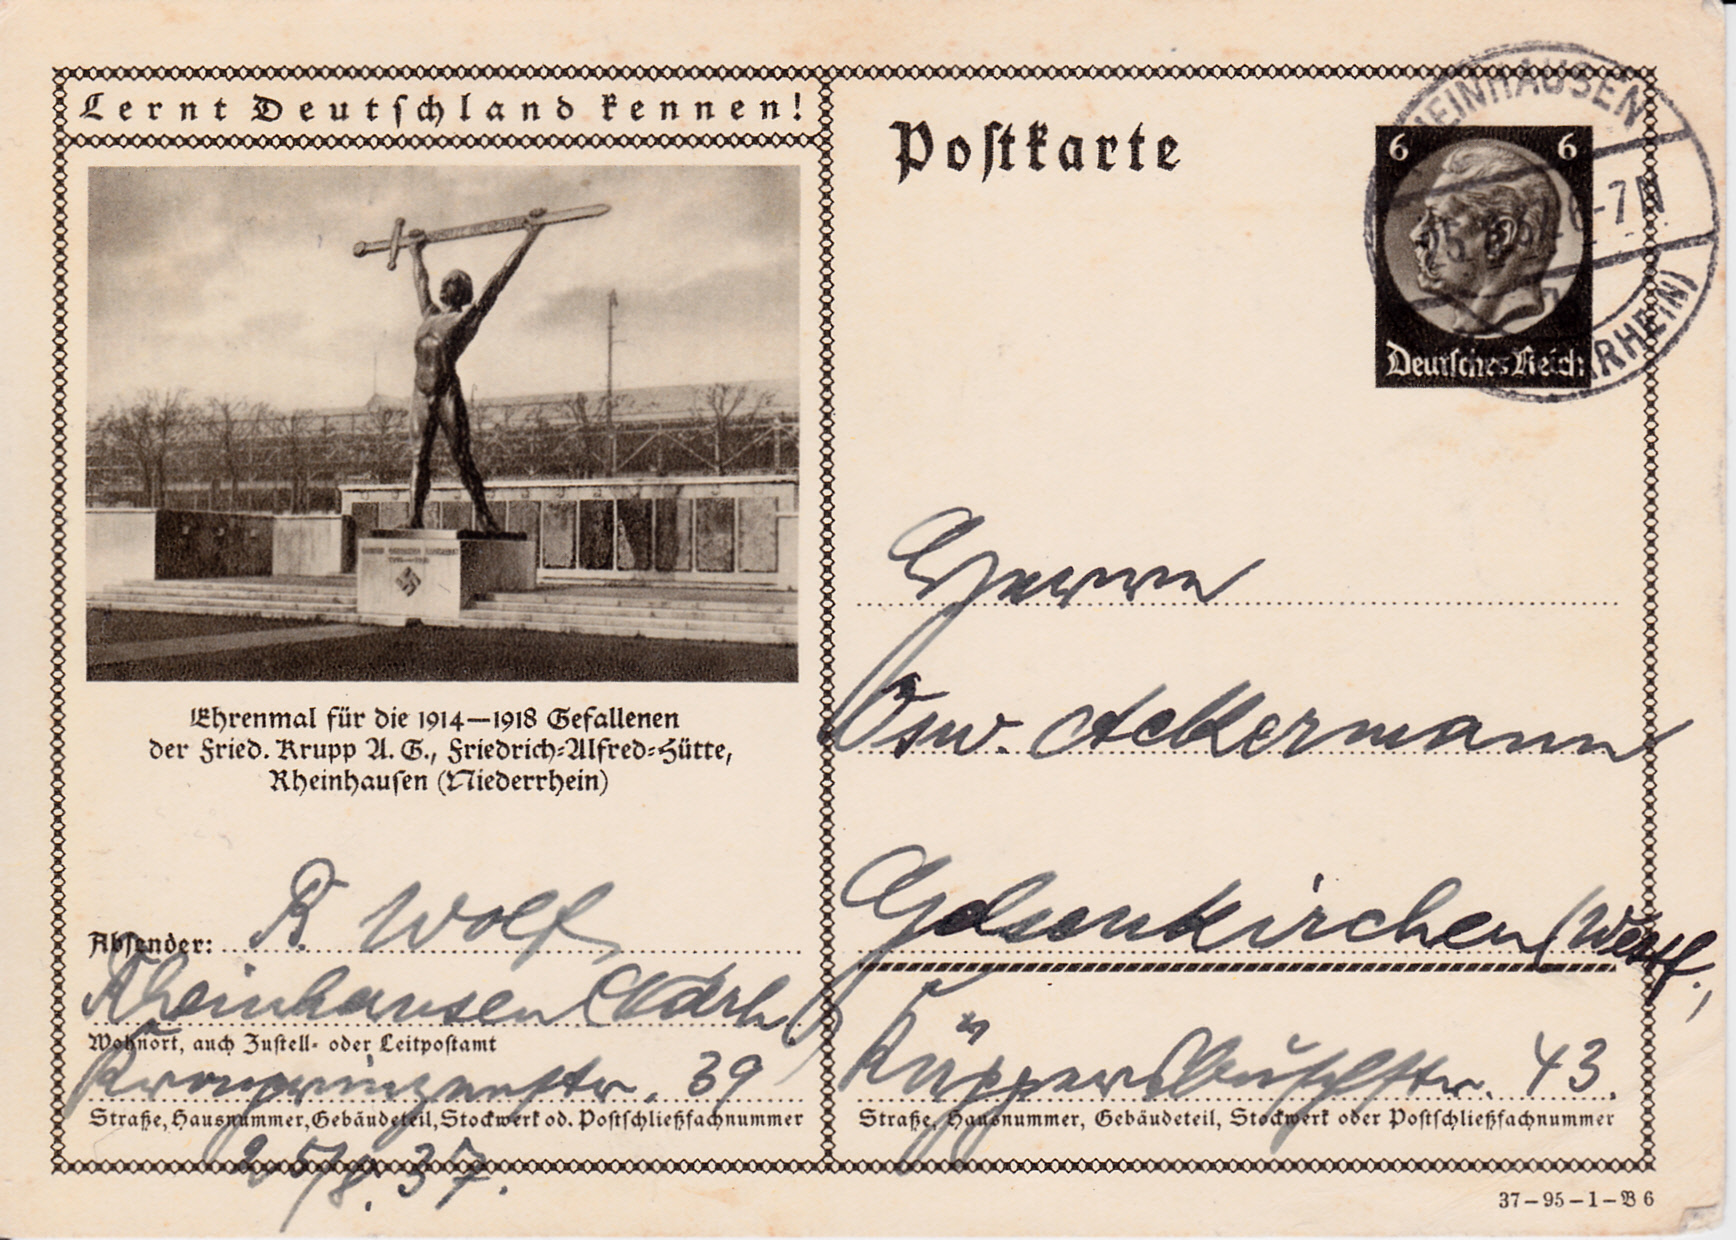 Lernt Deutschland kennen!
Ehrenmal für die 1914—1918 Gefallenen
der Fried. Krupp A. G., Friedrich-Alfred-Hütte,
Rheinhausen (Niederrhein)
Absender: R Wolf
Rheinhausen (Ndrh.)
Wohnort, auch Zustell- oder Leitpostamt
Kronprinzenstr. 39
Straße, Hausnummer, Gebäudeteil, Stockwerk od. Postschließfachnummer
25/8. 37.
Postkarte
6 6
Deutsches Reich
RHEINHAUSEN
-7N
(RHEIN)
Herrn
Osw. Ackermann
Gelsenkirchen (Westf.)
Küppersbuschstr. 43.
Straße, Hausnummer, Gebäudeteil, Stockwerk oder Postschließfachnummer
37—95—1—B 6